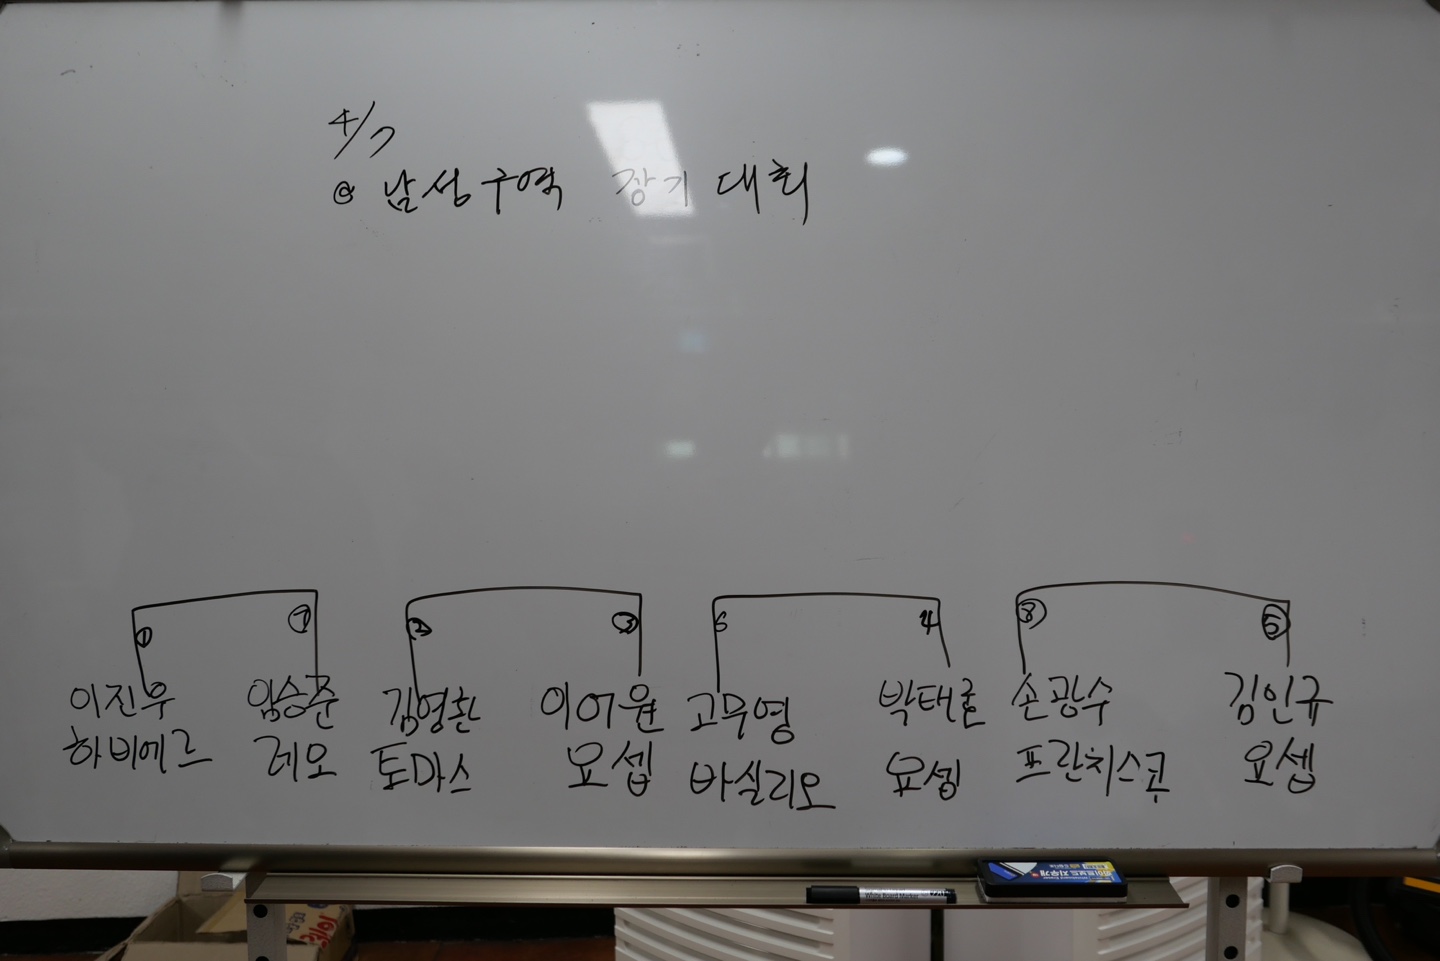 4/7
@ 남성구역 장기 대회
① ⑦ ② ③ 6 4 ⑧ ⑤
이진우 임승준 김영환 이어원 고무영 박태률 손광수 김인규
하비에르 레오 토마스 요셉 바실리오 요셉 프란치스코 요셉
화이트보드 지우개